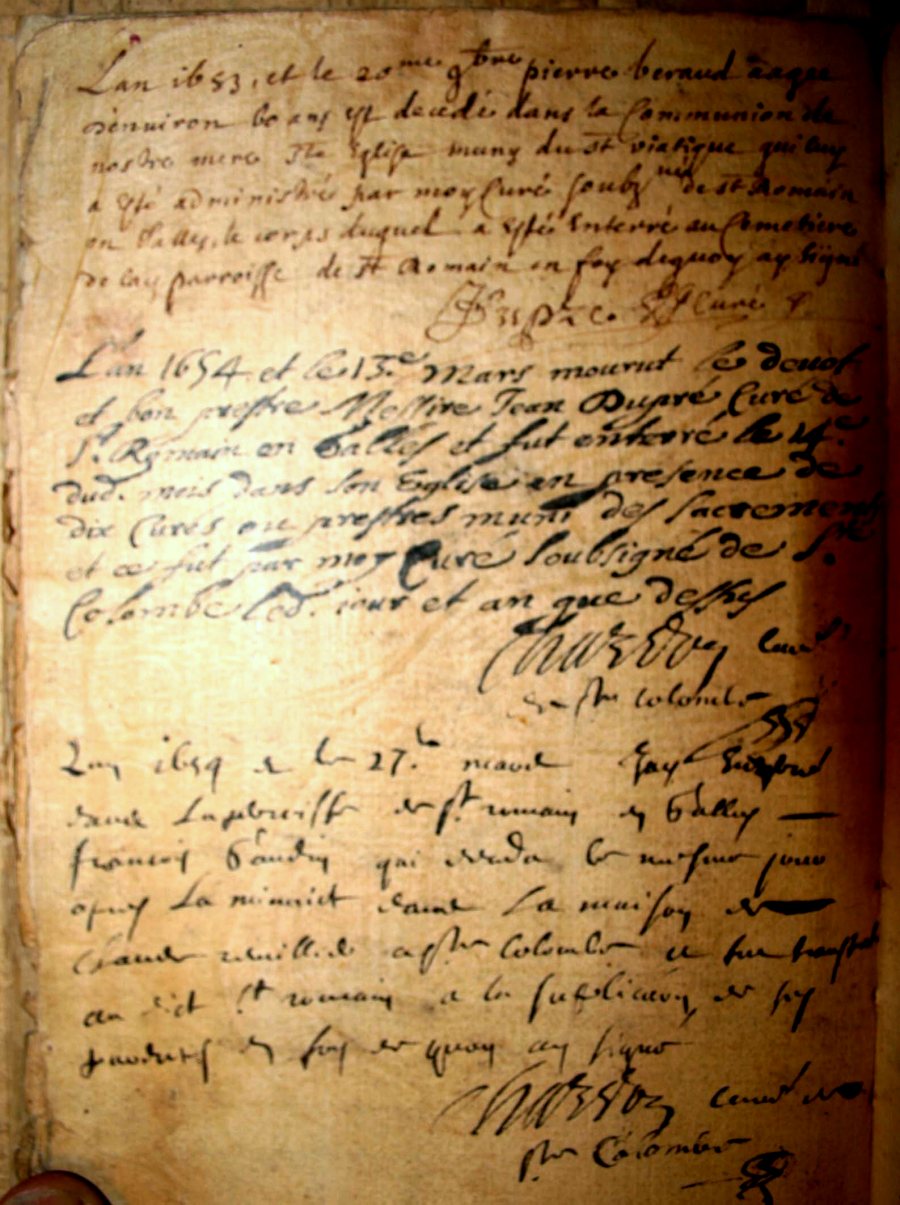 L'an 1653, et le 20me 9bre pierre beraud aagee
d'enuiron 60 ans est decedé dans la Communion de
nostre mere Ste Eglise muny du St viatique qui luy
a esté administré par moy Curé soubzné de St Romain
en Galles, le corps duquel a Esté Enterré au Cemetiere
de lad parroisse de St Romain en foy dequoy ay signé
Curé
L'an 1654 et le 13.e Mars mourut le deuot
et bon prestre Messire Jean Dupré Curé de
St. Romain en Galles et fut enterré le 14.e
dud. mois dans son Eglise en presence de
dix Curés ou prestres muni des sacrements
et ce fut par moy Curé soubsigné de Ste
Colombe led. iour et an que dessus
Chardon curé
de ste colombe
Lan 1654 e le 27.e mars Jay Enterré
dans La parroisse de st. romain en Galles
francois Gaudin qui deceda le mesme jour
apres La minuict dans La maison de
Claude a ste Colombe et fut transpté
au dict st romain a la suplicaon de ses
parents en foy de quoy ay signé
Chardon curé de
ste Colombe